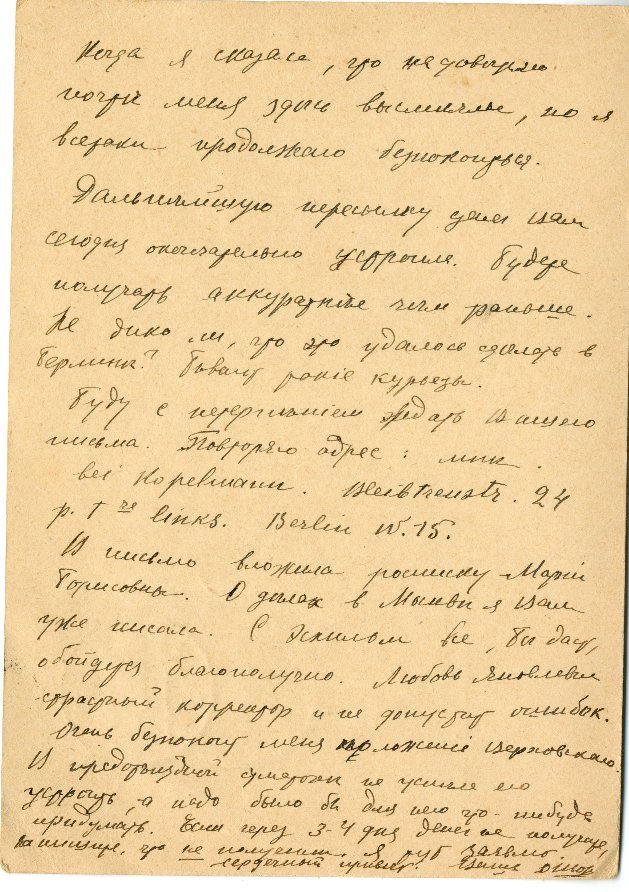 Когда я сказала, что недовольна
почти меня здесь высмеяли, но я
всетаки продолжаю безпокоиться.
Дальнѣйшую пересылку денег Вам
сегодня окончательно устроила. Будете
получать аккуратнѣе чем раньше.
Не дико ли, что это удалось сделать в
Берлинѣ? Бывают такіе курьезы.
Буду с нетерпѣнием ждать Вашего
письма. Повторяю адрес:
bei Kopelmann. Bleibtreustr. 24
p. t re links. Berlin W. 15.
В письмо вложила росписку Маріи
Борисовны. О дѣлах в Москвѣ я Вам
уже писала. С Эсхилом все, Бг даст,
обойдется благополучно. Любовь Яковлевна
страстный корректор и не допустит ошибок.
Очень безпокоит меня положеніе Верховскаго.
В предотъѣздной суматохѣ не успѣла его
устроить, а надо было бы для него что-нибудь
придумать. Если через 3-4 дня денег не получите,
напишите, что не получили. Я тут заявлю
сердечный привет. Ваша